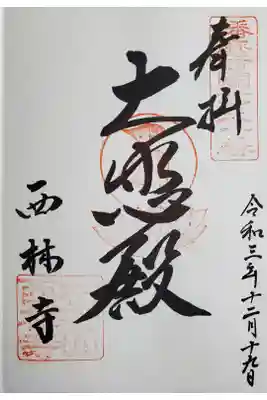 奉拝
令和三年十二月十九日
大悲殿
西林寺